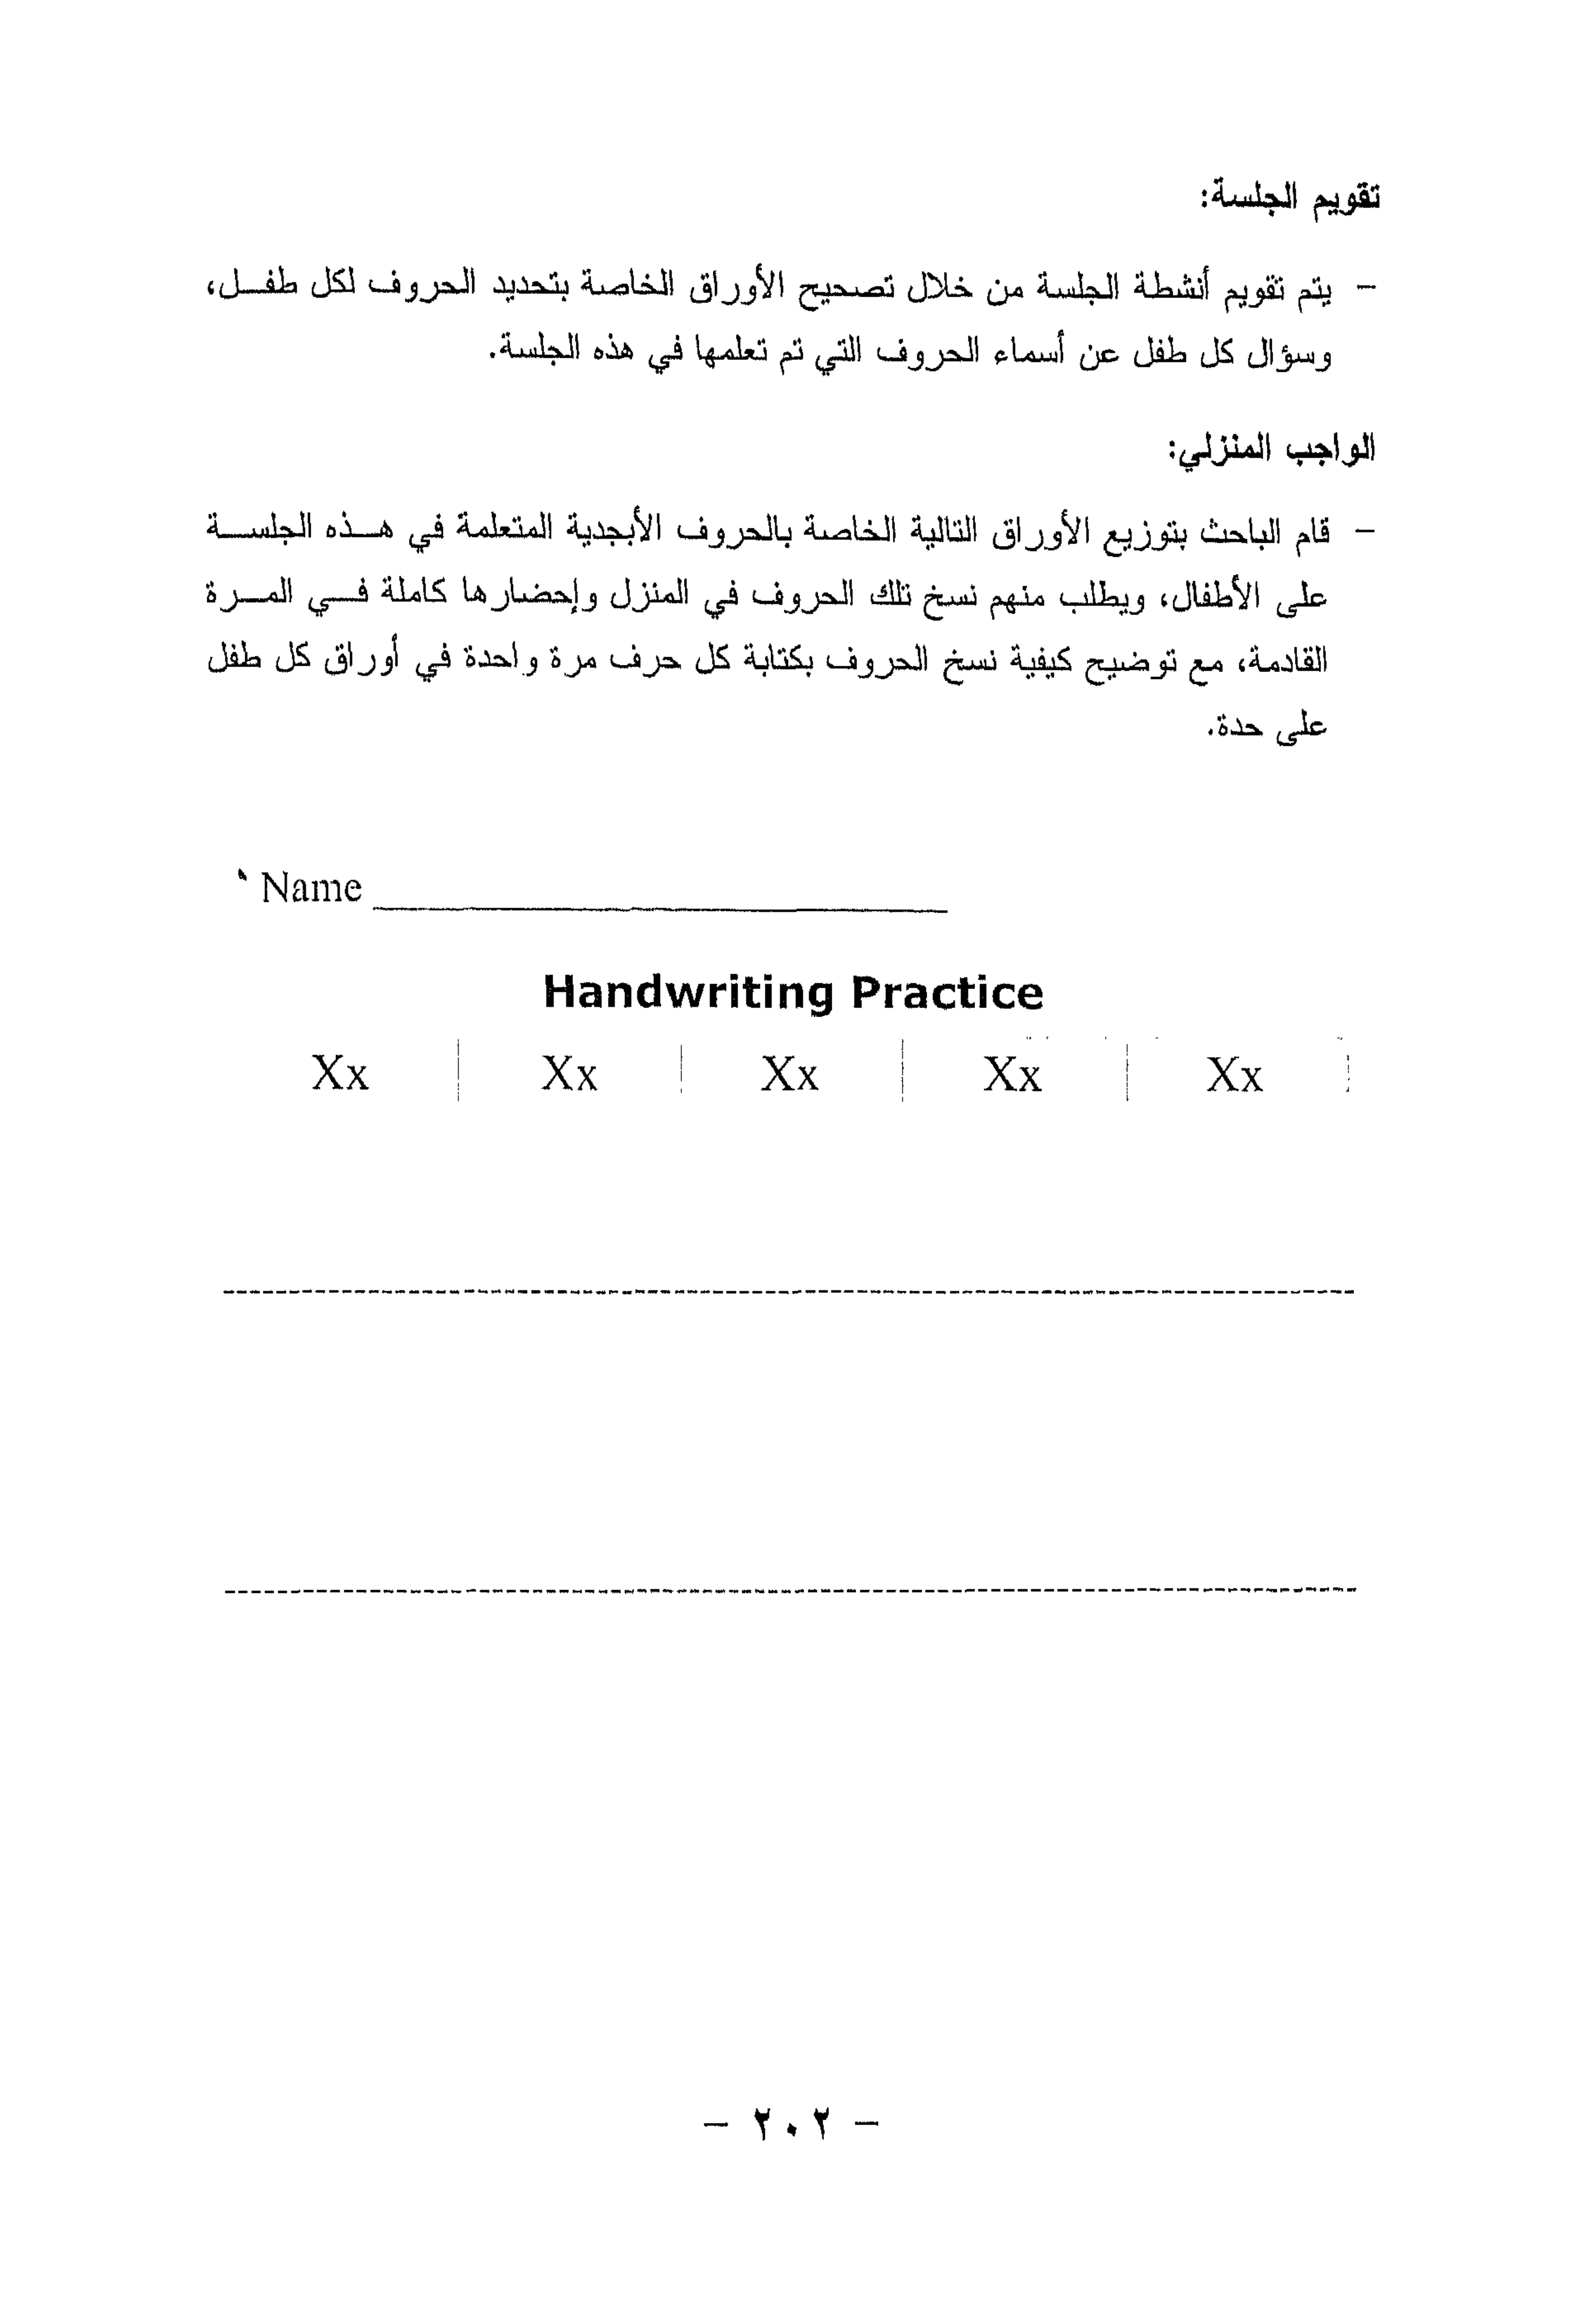 تقويم الجلسة:
- يتم تقويم أنشطة الجلسة من خلال تصحيح الأوراق الخاصة بتحديد الحروف لكل طفــل،
وسؤال كل طفل عن أسماء الحروف التي تم تعلمها في هذه الجلسة.
الواجب المنزلي:
- قام الباحث بتوزيع الأوراق التالية الخاصة بالحروف الأبجدية المتعلمة في هــذه الجلســة
على الأطفال، ويطلب منهم نسخ تلك الحروف في المنزل وإحضارها كاملة فــي المــرة
القادمة، مع توضيح كيفية نسخ الحروف بكتابة كل حرف مرة واحدة في أوراق كل طفل
على حدة.
Name ____________________
Handwriting Practice
Xx Xx Xx Xx Xx
- ٢٠٢ -